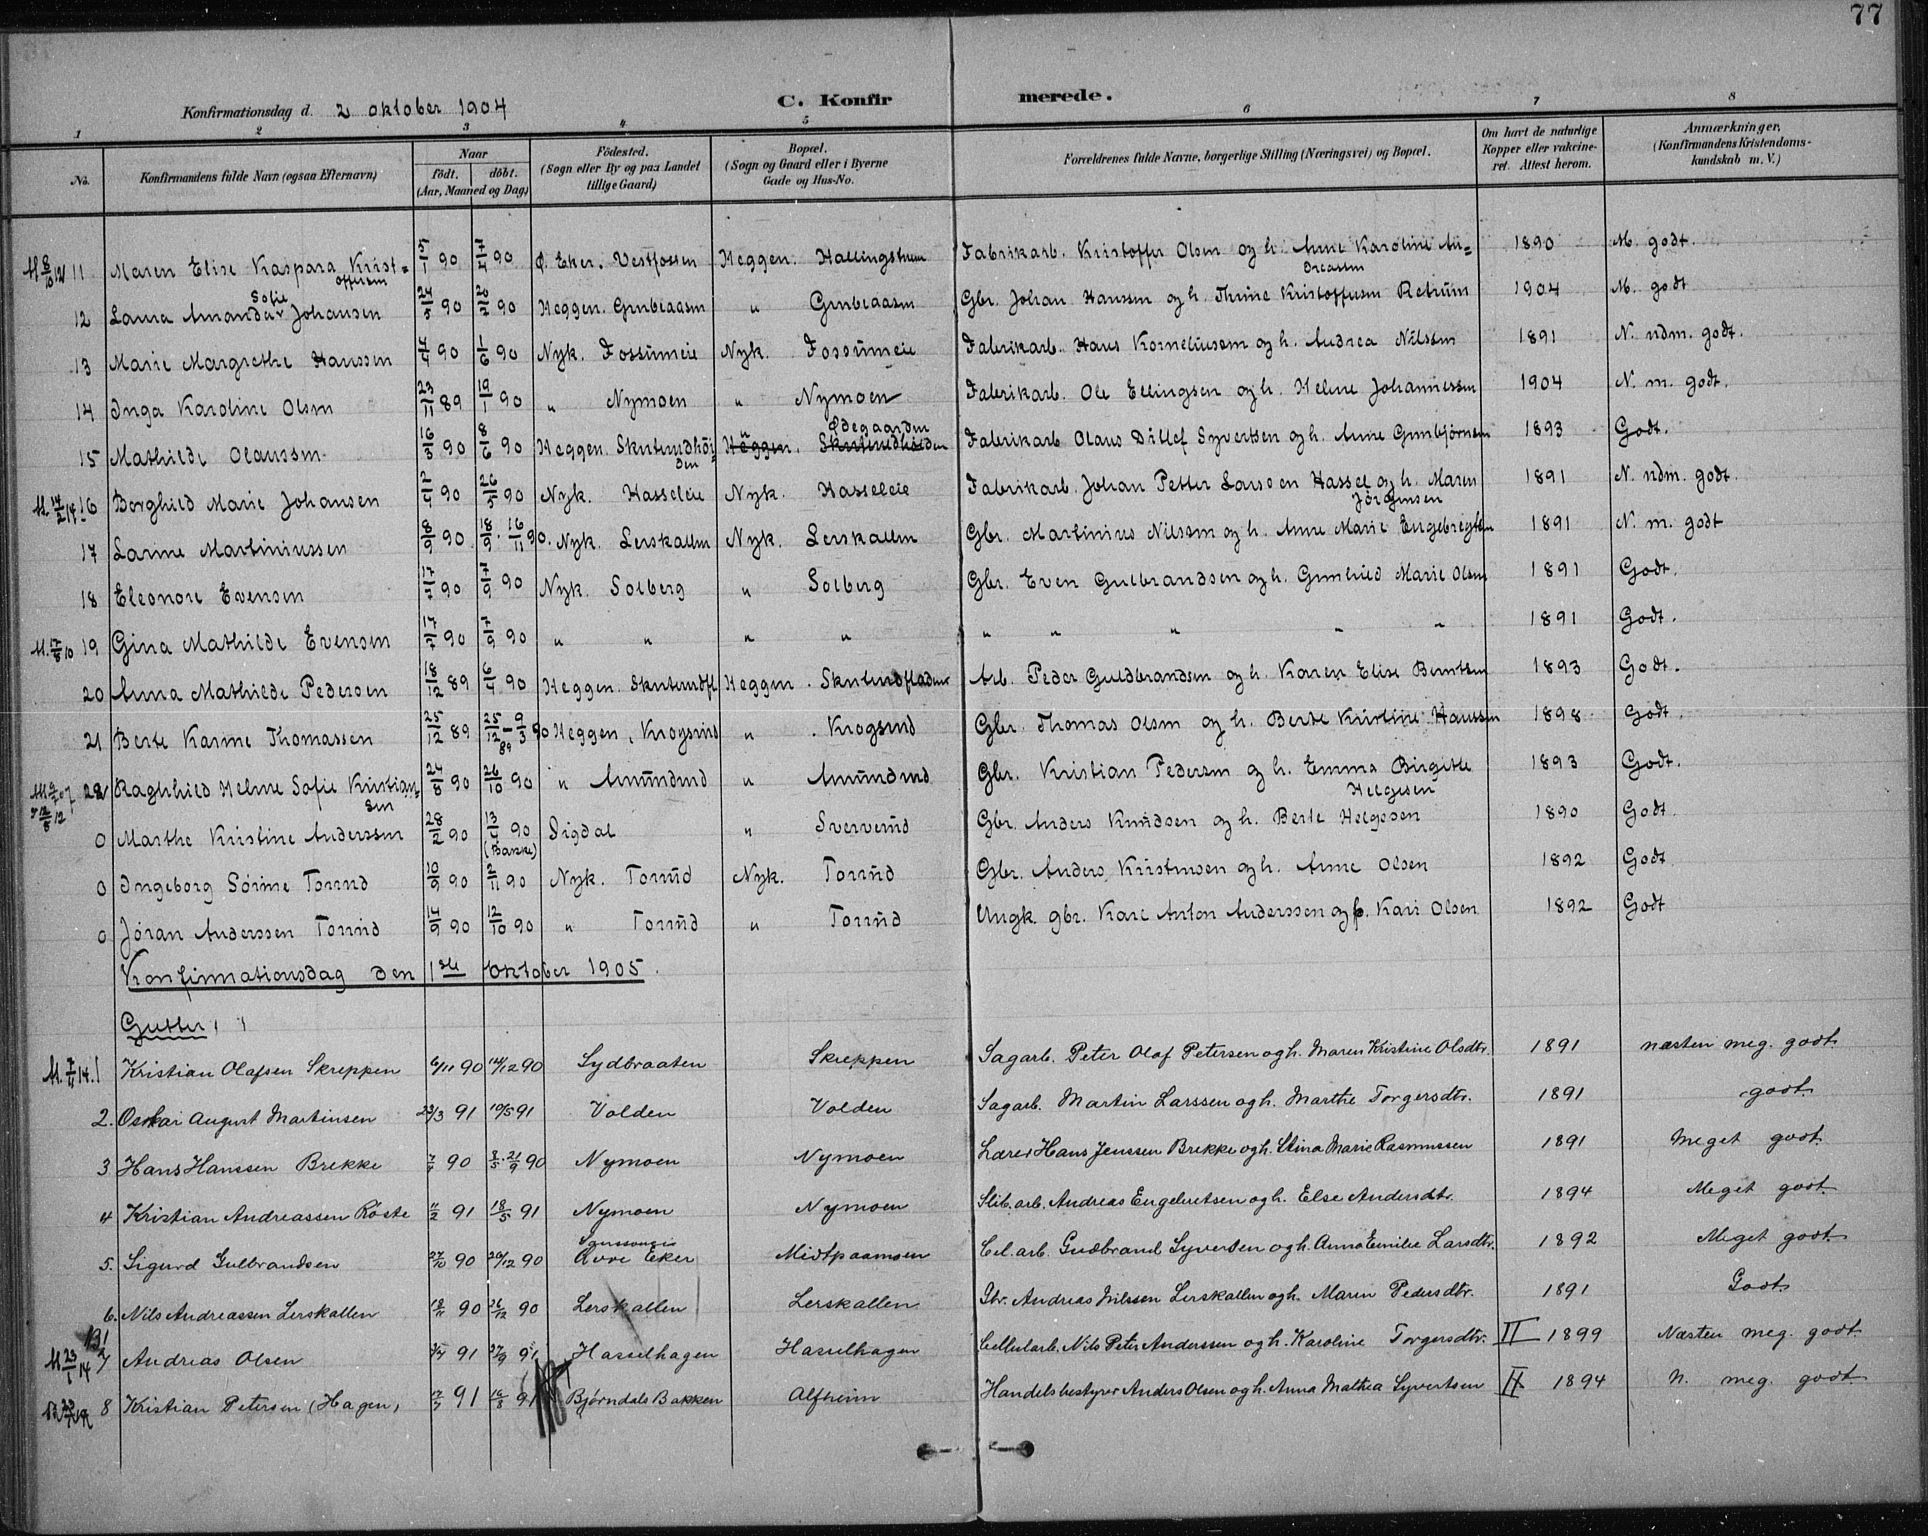 77
Konfirmationsdag d. 2 oktober 1904
C. Konfirmerede.
1 2 3 4 5 6 7 8
No. Konfirmandens fulde Navn (ogsaa Efternavn) Naar født. døbt. (Aar, Maaned og Dag) Fødested. (Sogn eller By og paa Landet tillige Gaard) Bopæl. (Sogn og Gaard eller i Byerne Gade og Hus-No. Forældrenes fulde Navne, borgerlige Stilling (Næringsvei) og Bopæl. Om havt de naturlige Kopper eller vakcineret. Attest herom. Anmærkninger. (Konfirmandens Kristendomskundskab m. V.)
11 Maren Elise Kaspara Kristoffersen 5/1 90 7/4 90 Ø. Eker. Vestfossen Heggen. Hallingstuen Fabrikarb. Kristoffer Olsen og h. Anne Karoline Andreassen 1890 M. godt.
12 Laura Amanda Sofie Johansen 24/5 90 20/7 90 Heggen. Grubeaasen " Grubeaasen Gbr. Johan Hanssen og h. Thrine Kristoffersen Retrum 1904 M. godt
13 Marie Margrethe Hanssen 4/4 90 1/6 90 Nyk. Fossumeie Nyk. Fossumeie Fabrikarb. Hans Korneliussen og h. Andrea Nilssen 1891 N. udm. godt.
14 Inga Karoline Olsen 23/11 89 19/1 90 " Nymoen " Nymoen Fabrikarb. Ole Ellingsen og h. Helene Johannessen 1904 N. m. godt.
15 Mathilde Olaussen 16/3 90 8/6 90 Heggen. Skuterudhöiden Heggen. Skuterudhöiden " Ödegaarden Fabrikarb. Olaus Ditlef Syvertsen og h. Anne Gunbjørnsen 1893 Godt.
M. 14/2 14. 16 Borghild Marie Johansen 2/4 90 26/5 90 Nyk. Hasseleie Nyk. Hasseleie Fabrikarb. Johan Petter Larssen Hassel og h. Maren Jörgensen 1891 N. udm. godt.
17 Larine Martiniussen 8/9 90 18/9 . 16/11 90. Nyk. Lerskallen Nyk. Lerskallen Gbr. Martinius Nilssen og h. Anne Marie Engebregtsen 1891 N. m. godt
18 Eleonore Evensen 17/7 90 7/9 90 Nyk. Solberg " Solberg Gbr. Even Gulbrandsen og h. Gunhild Marie Olsen 1891 Godt.
M. 17/8 10 19 Gina Mathilde Evensen 17/7 90 7/9 90 " " " " " " " " " 1891 Godt.
20 Anna Mathilde Pedersen 18/12 89 6/4 90 Heggen. Skuterudfl Heggen. Skuterudfladen Arb. Peder Guldbrandsen og h. Karen Elise Berntsen 1893 Godt.
21 Berte Karine Thomassen 25/12 89 25/12 89 - 9/3 90 Heggen, Krogsrud " . Krogsrud Gbr. Thomas Olsen og h. Berte Kristine Hanssen 1898 Godt.
22 Raghild Helene Sofie Kristiansen 24/8 90 26/10 90 " Amundrud " Amundrud Gbr. Kristian Pedersen og h. Emma Birgitte Helgesen 1893 Godt.
0 Marthe Kristine Anderssen 28/2 90 13/4 90 (Bakke) Sigdal " Sververud Gbr. Anders Knudsen og h. Berte Helgesen 1890 Godt.
0 Ingeborg Sörine Torrud 10/9 90 2/11 90 Nyk. Torrud Nyk. Torrud Gbr. Anders Kristensen og h. Anne Olsen 1892 Godt
0 Jöran Anderssen Torrud 14/9 90 12/10 90 " Torrud " Torrud Ungk. gbr. Karl Anton Anderssen og p. Kari Olsen 1892 Godt
Konfirmationsdag den 1ste oktober 1905.
Gutter.
M. 7/11 14. 1 Kristian Olafsen Skreppen 6/11 90 14/12 90 Sydbraaten Skreppen Sagarb. Peter Olaf Petersen og h. Maren Kristine Olsdtr. 1891 næsten meg. godt.
2. Oskar August Martinsen 23/3 91 10/5 91 Volden Volden Sagarb. Martin Larssen og h. Marthe Torgersdtr. 1891 godt.
3 Hans Hanssen Brekke 7/7 90 21/9 90 Nymoen Nymoen Lærer Hans Jenssen Brekke og h. Stina Marie Rasmussen 1891 Meget godt.
4 Kristian Andreassen Röste 11/2 91 18/5 91 Nymoen Nymoen Slib. arb. Andreas Engebretsen og h. Else Andersdtr. 1894 Meget godt.
5. Sigurd Gulbrandsen 27/10 90 26/12 90 Övre Eker Midtpaamoen Cel. arb. Gudbrand Syversen og h. Anne Emilie Larsdtr. 1892 Meget godt.
6. Nils Andreassen Lerskallen 18/11 90 26/12 90 Lerskallen Lerskallen Gbr. Andreas Nilssen Lerskallen og h. Maren Pedersdtr. 1891 Godt.
M 23/1 14 7 Andreas Olsen 91 27/9 91 Hasselhagen Hasselhagen Cellularb. Nils Peter Anderssen og h. Karoline Torgersdtr. II 1899 Næsten meg. godt.
8 Kristian Petersen (Hagen) 17/7 91 16/8 91 Bjørndals Bakken Alfheim Handelsbestyrer Anders Olsen og h. Anna Mathea Syvertsen II 1894 N. meg. godt.